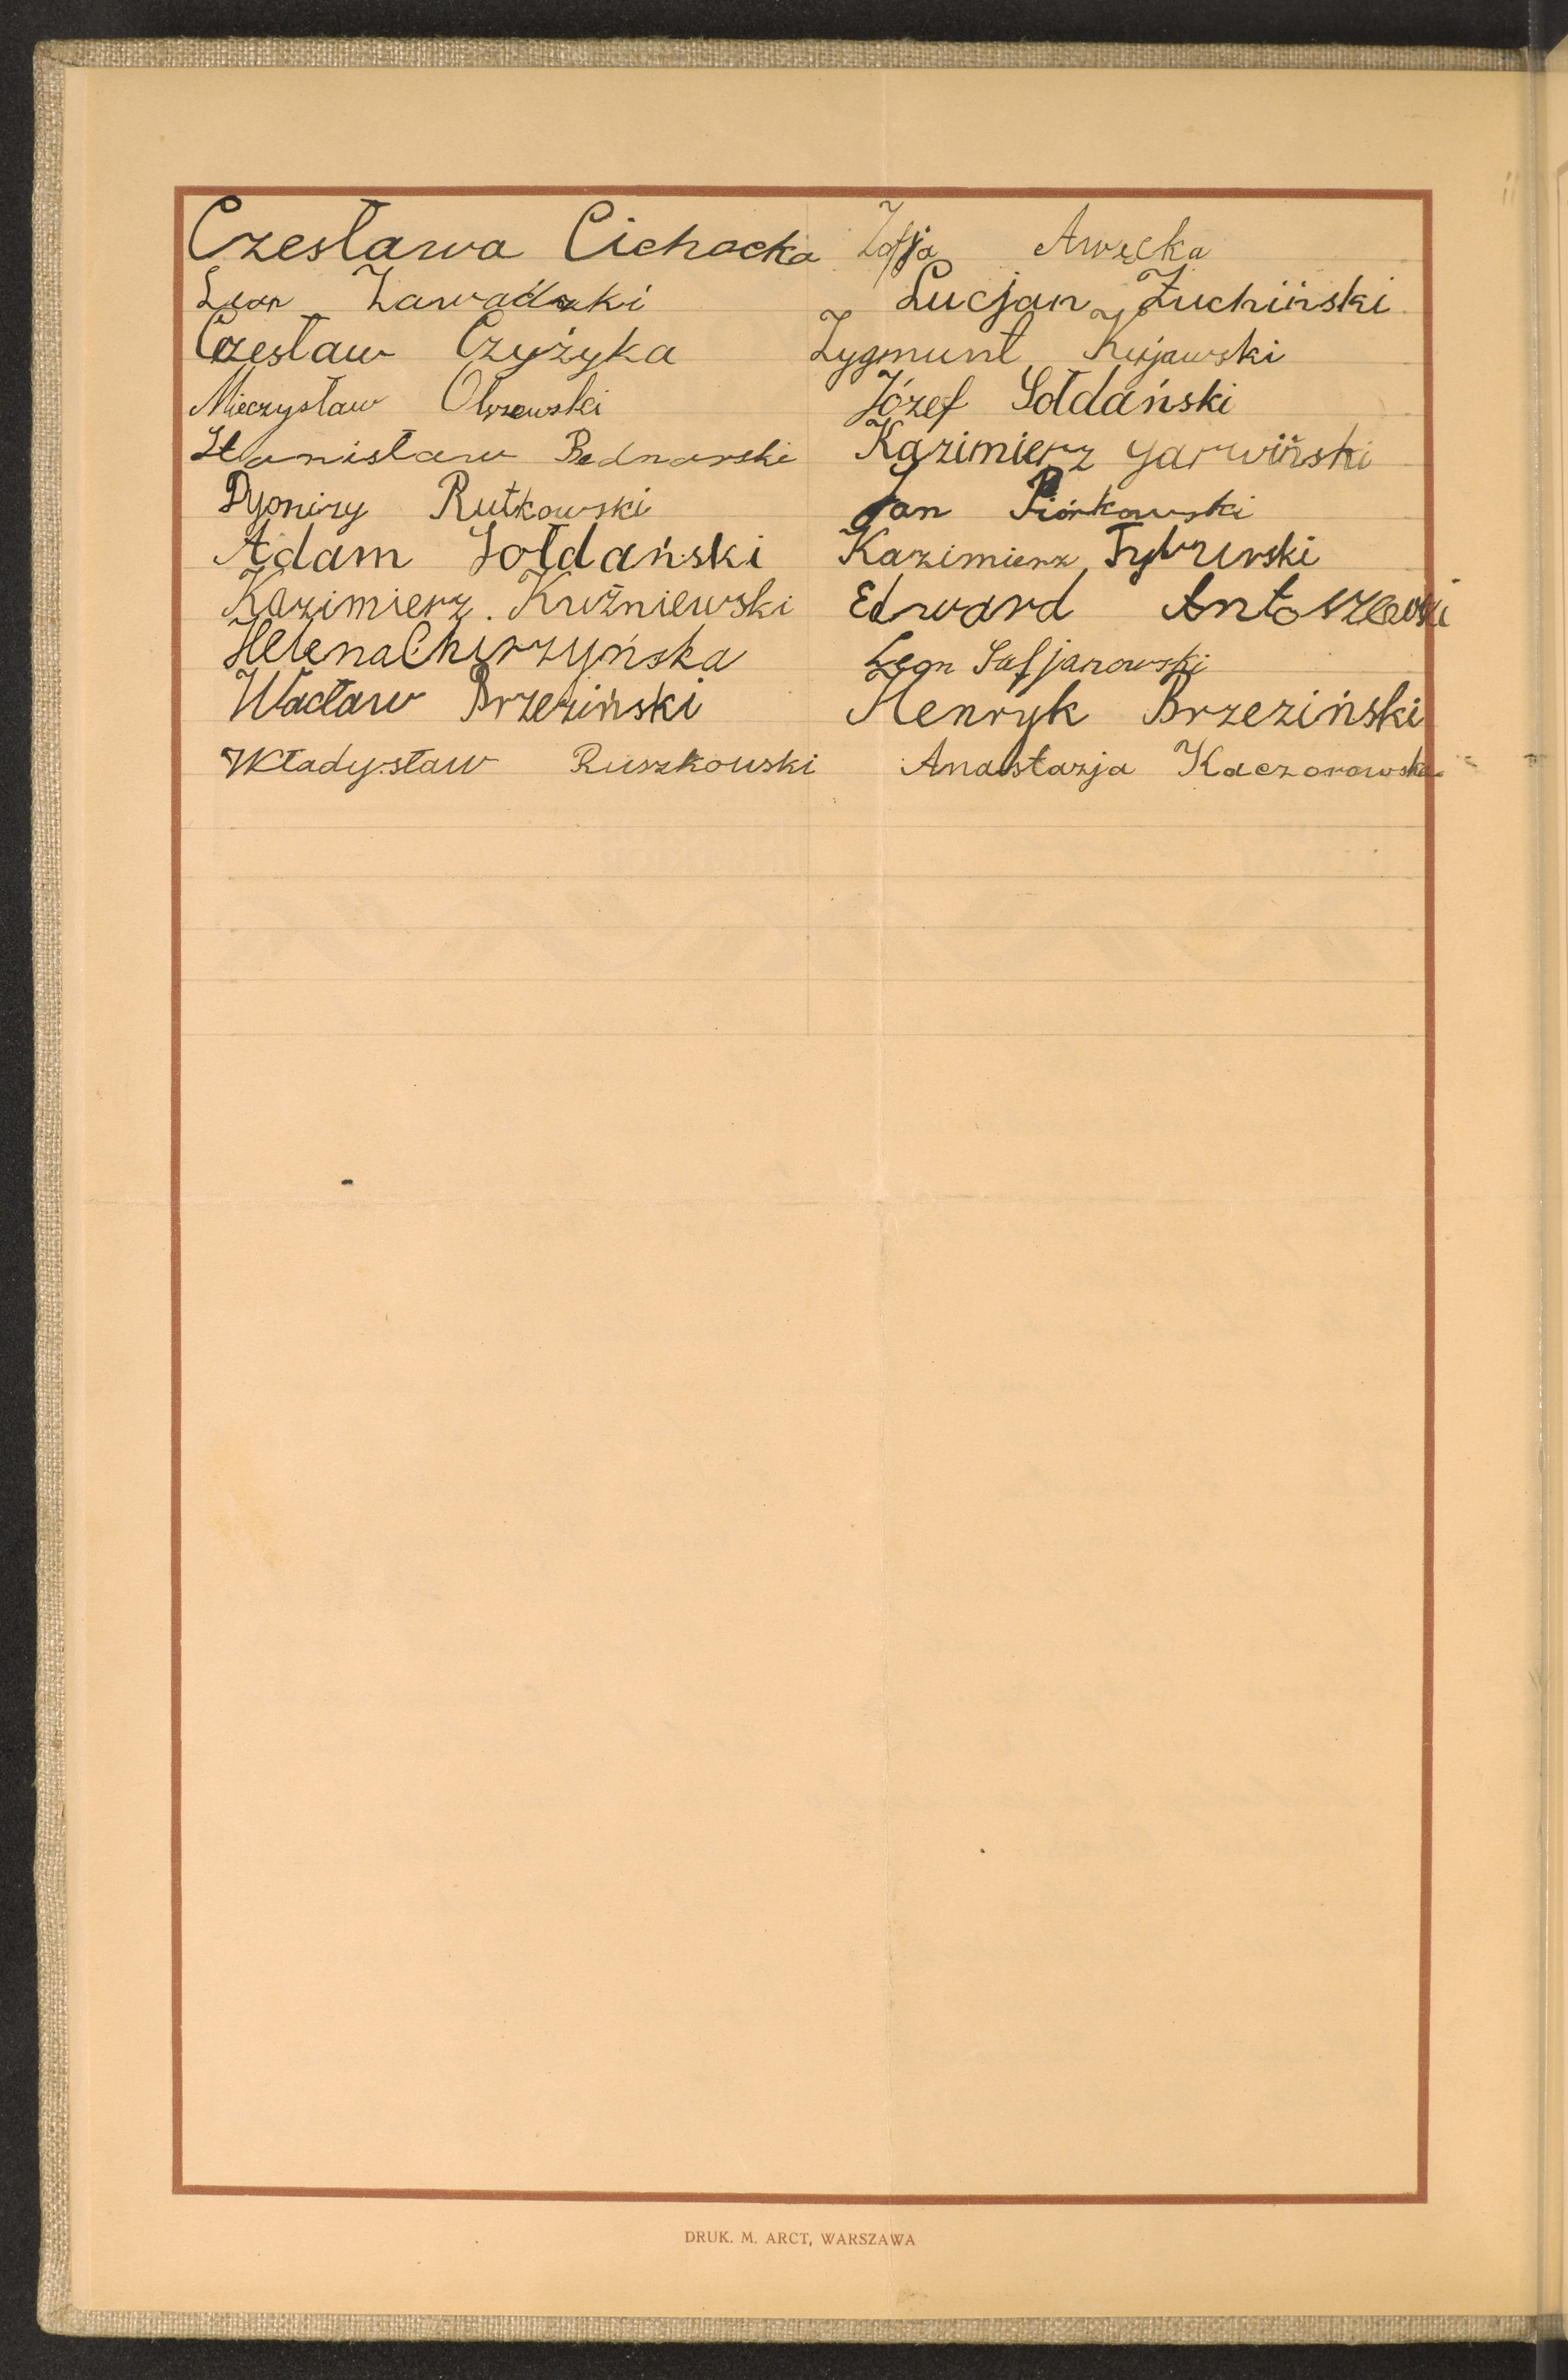 Czesława Cichocka
Leon Zawadzki
Czesław Czyżyka
Mieczysław Olszewski
Stanisław Bednarski
Dyonizy Rutkowski
Adam Sołdański
Kazimierz. Kuźniewski
Helena Churzyńska
Wacław Brzeziński
Władysław Ruszkowski
Zofja
Lucjan Żuchiński
Zygmunt Kujawski
Józef Sołdański
Kazimierz Garwiński
Jan Piórkowski
Kazimierz
Edward Antoszewski
Leon Safjanowski
Henryk Brzeziński
Anastazja Kaczorowska
DRUK. M. ARCT, WARSZAWA